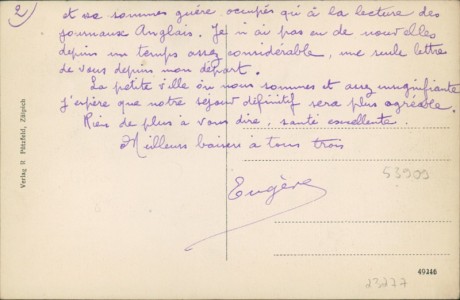 2)
et ne sommes guère occupés qu'à la lecture des
journaux Anglais. Je n'ai pas eu de nouvelles
depuis un temps assez considérable, une seule lettre
de vous depuis mon départ.
La petite ville où nous sommes et assez insignifiante
j'espère que notre séjour définitif sera plus agréable.
Rien de plus à vous dire, santé excellente.
Meilleurs baisers à tous trois
Eugène
Verlag H Pützfeld, Zülpich
53909
49346
23277